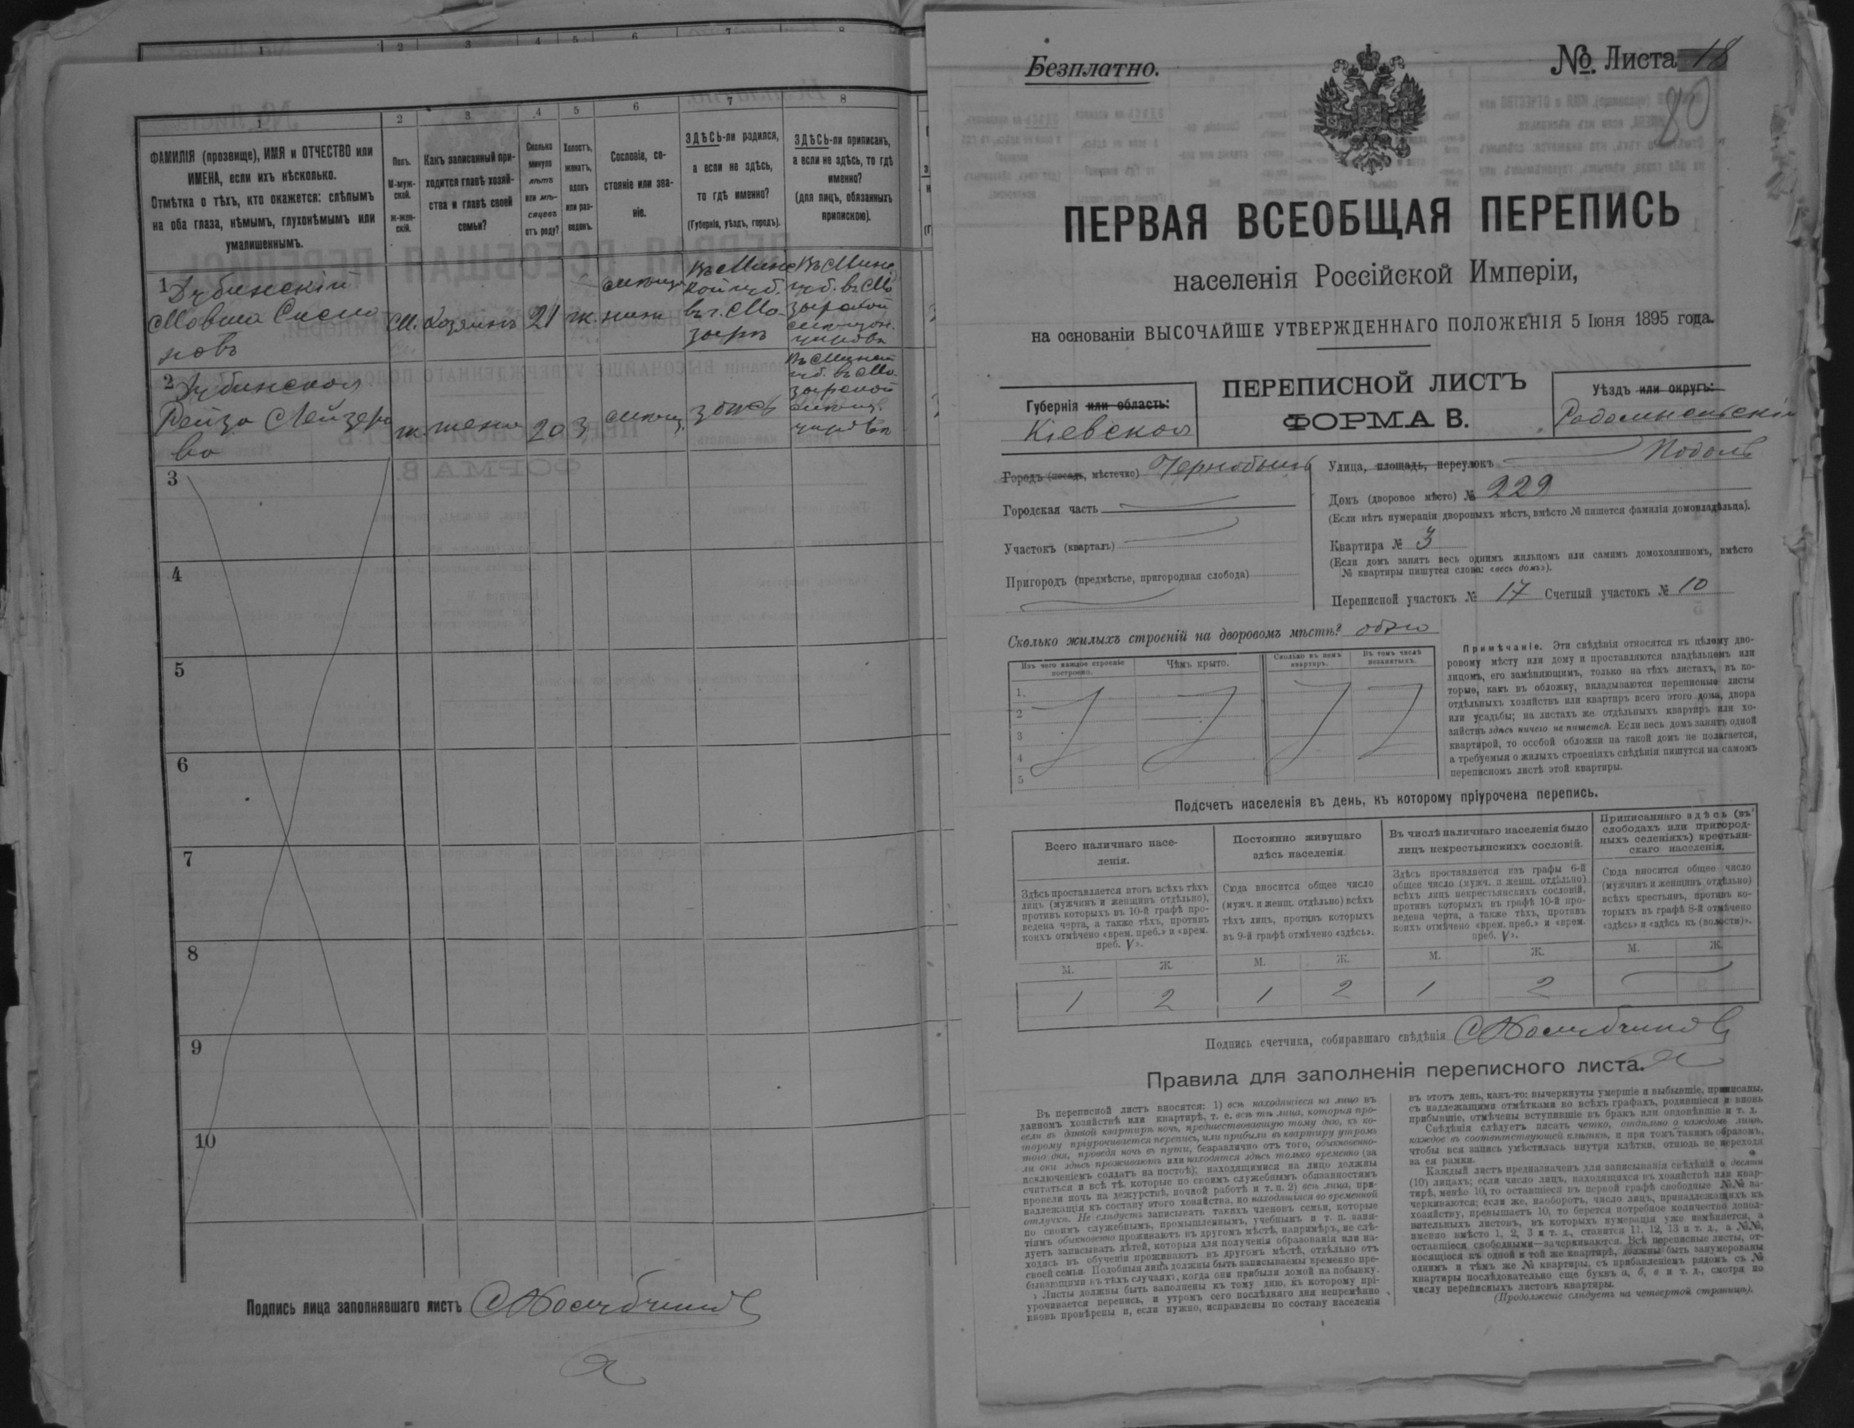 1 2 3 4 5 6 7 8
ФАМИЛІЯ (прозвище), ИМЯ и ОТЧЕСТВО или
ИМЕНА, если ихъ нѣсколько.
Отмѣтка о тѣхъ, кто окажется: слѣпымъ
на оба глаза, нѣмымъ, глухонѣмымъ или
умалишеннымъ.
Полъ.
М-муж-
ской.
Ж-жен-
скій.
Какъ записанный при-
ходится главѣ хозяй-
ства и главѣ своей
семьи?
Сколько
минуло
лѣтъ
или мѣ-
сяцевъ
отъ роду?
Холостъ,
женатъ,
вдовъ
или раз-
веденъ.
Сословіе, со-
стояніе или зва-
ніе.
ЗДѢСЬ-ли родился,
а если не здѣсь,
то гдѣ именно?
(Губернія, уѣздъ, городъ).
ЗДѢСЬ-ли приписанъ,
а если не здѣсь, то гдѣ
именно?
(для лицъ, обязанныхъ
припискою).
1 Дубинскій
Мовша Симо
новъ
М. Хозяинъ 21 ж.
въ г. Мо
зырѣ
2 Дубинская
Рейза Лейзеро
ва
ж. жена 20 З здѣсь
3
4
5
6
7
8
9
10
Подпись лица заполнявшаго листъ
Безплатно.
№ Листа 18
80
ПЕРВАЯ ВСЕОБЩАЯ ПЕРЕПИСЬ
населенія Россійской Имперіи,
на основаніи ВЫСОЧАЙШЕ УТВЕРЖДЕННАГО ПОЛОЖЕНІЯ 5 Іюня 1895 года.
ПЕРЕПИСНОЙ ЛИСТЪ
ФОРМА В.
Губернія или область:
Кіевская
Уѣздъ или округъ:
Радомысльскій
Городъ (посадъ, мѣстечко) Чернобыль
Городская часть
Участокъ (кварталъ)
Пригородъ (предмѣстье, пригородная слобода)
Улица, площадь, переулокъ Подолъ
Домъ (дворовое мѣсто) № 229
(Если нѣтъ нумераціи дворовыхъ мѣстъ, вмѣсто № пишется фамилія домовладѣльца).
Квартира № 3
(Если домъ занятъ весь однимъ жильцомъ или самимъ домохозяиномъ, вмѣсто
№ квартиры пишутся слова: «весь домъ»).
Переписной участокъ № 17 Счетный участокъ № 10
Сколько жилыхъ строеній на дворовомъ мѣстѣ? одно
Изъ чего каждое строеніе
построено.
Чѣмъ крыто.
Сколько въ немъ
квартиръ.
Въ томъ числѣ
незанятыхъ.
1.
2
3
4
5
Примѣчаніе. Эти свѣдѣнія относятся къ цѣлому дво-
ровому мѣсту или дому и проставляются владѣльцемъ или
лицомъ, его замѣняющимъ, только на тѣхъ листахъ, въ ко-
торые, какъ въ обложку, вкладываются переписные листы
отдѣльныхъ хозяйствъ или квартиръ всего этого дома, двора
или усадьбы; на листахъ же отдѣльныхъ квартиръ или хо-
зяйствъ здѣсь ничего не пишется. Если весь домъ занятъ одной
квартирой, то особой обложки на такой домъ не полагается,
а требуемыя о жилыхъ строеніяхъ свѣдѣнія пишутся на самомъ
переписномъ листѣ этой квартиры.
Подсчетъ населенія въ день, къ которому пріурочена перепись.
Всего наличнаго насе-
ленія.
Здѣсь проставляется итогъ всѣхъ тѣхъ
лицъ (мужчинъ и женщинъ отдѣльно),
противъ которыхъ въ 10-й графѣ про-
ведена черта, а также тѣхъ, противъ
коихъ отмѣчено «врем. преб.» и «врем.
преб. V».
Постоянно живущаго
здѣсь населенія.
Сюда вносится общее число
(мужч. и женщ. отдѣльно) всѣхъ
тѣхъ лицъ, противъ которыхъ
въ 9-й графѣ отмѣчено «здѣсь».
Въ числѣ наличнаго населенія было
лицъ некрестьянскихъ сословій.
Здѣсь проставляется изъ графы 6-й
общее число (мужч. и женщ. отдѣльно)
всѣхъ лицъ некрестьянскихъ сословій,
противъ которыхъ въ графѣ 10-й про-
ведена черта, а также тѣхъ, противъ
коихъ отмѣчено «врем. преб.» и «врем.
преб. V».
Приписаннаго здѣсь (въ
слободахъ или пригород-
ныхъ селеніяхъ) крестьян-
скаго населенія.
Сюда вносится общее число
(мужчинъ и женщинъ отдѣльно)
всѣхъ крестьянъ, противъ ко-
торыхъ въ графѣ 8-й отмѣчено
«здѣсь» и «здѣсь къ (волости)».
М. Ж. М. Ж. М. Ж. М. Ж.
1 2 1 2 1 2
Подпись счетчика, собиравшаго свѣдѣнія
Правила для заполненія переписного листа.
Въ переписной листъ вносятся: 1) всѣ находящіеся на лицо въ
данномъ хозяйствѣ или квартирѣ, т. е. всѣ тѣ лица, которыя про-
вели въ данной квартирѣ ночь, предшествовавшую тому дню, къ ко-
торому пріурочивается перепись, или прибыли въ квартиру утромъ
того дня, проведя ночь въ пути, безразлично отъ того, обыкновенно-
ли они здѣсь проживаютъ или находятся здѣсь только временно (за
исключеніемъ солдатъ на постоѣ); находящимися на лицо должны
считаться и всѣ тѣ, которые по своимъ служебнымъ обязанностямъ
провели ночь на дежурствѣ, ночной работѣ и т. п. 2) всѣ лица, при-
надлежащія къ составу этого хозяйства, но находящіяся во временной
отлучкѣ. Не слѣдуетъ записывать такихъ членовъ семьи, которые
по своимъ служебнымъ, промышленнымъ, учебнымъ и т. п. заня-
тіямъ обыкновенно проживаютъ въ другомъ мѣстѣ, напримѣръ, не слѣ-
дуетъ записывать дѣтей, которыя для полученія образованія или на-
ходясь въ обученіи проживаютъ въ другомъ мѣстѣ, отдѣльно отъ
своей семьи. Подобныя лица должны быть записываемы временно пре-
бывающими въ тѣхъ случаяхъ, когда они прибыли домой на побывку.
Листы должны быть заполнены къ тому дню, къ которому прі-
урочивается перепись, и утромъ сего послѣдняго дня непремѣнно
вновь провѣрены и, если нужно, исправлены по составу населенія
въ этотъ день, какъ-то: вычеркнуты умершіе и выбывшіе, приписаны,
съ надлежащими отмѣтками во всѣхъ графахъ, родившіеся и вновь
прибывшіе, отмѣчены вступившіе въ бракъ или овдовѣвшіе и т. д.
Свѣдѣнія слѣдуетъ писать четко, отдѣльно о каждомъ лицѣ,
каждое въ соотвѣтствующей клѣткѣ, и при томъ такимъ образомъ,
чтобы вся запись умѣстилась внутри клѣтки, отнюдь не переходя
за ея рамки.
Каждый листъ предназначенъ для записыванія свѣдѣній о десяти
(10) лицахъ; если число лицъ, находящихся въ хозяйствѣ или квар-
тирѣ, менѣе 10, то оставшіеся въ первой графѣ свободные №№ за-
черкиваются; если же, наоборотъ, число лицъ, принадлежащихъ къ
хозяйству, превышаетъ 10, то берется потребное количество допол-
нительныхъ листовъ, въ которыхъ нумерація уже измѣняется, а
именно вмѣсто 1, 2, 3 и т. д., ставится 11, 12, 13 и т. д., а №№,
оставшіеся свободными—зачеркиваются. Всѣ переписные листы, от-
носящіеся къ одной и той же квартирѣ, должны быть занумерованы
однимъ и тѣмъ же № квартиры, съ прибавленіемъ рядомъ съ №
квартиры послѣдовательно еще буквъ а, б, в и т. д., смотря по
числу переписныхъ листовъ квартиры.
(Продолженіе слѣдуетъ на четвертой страницѣ).